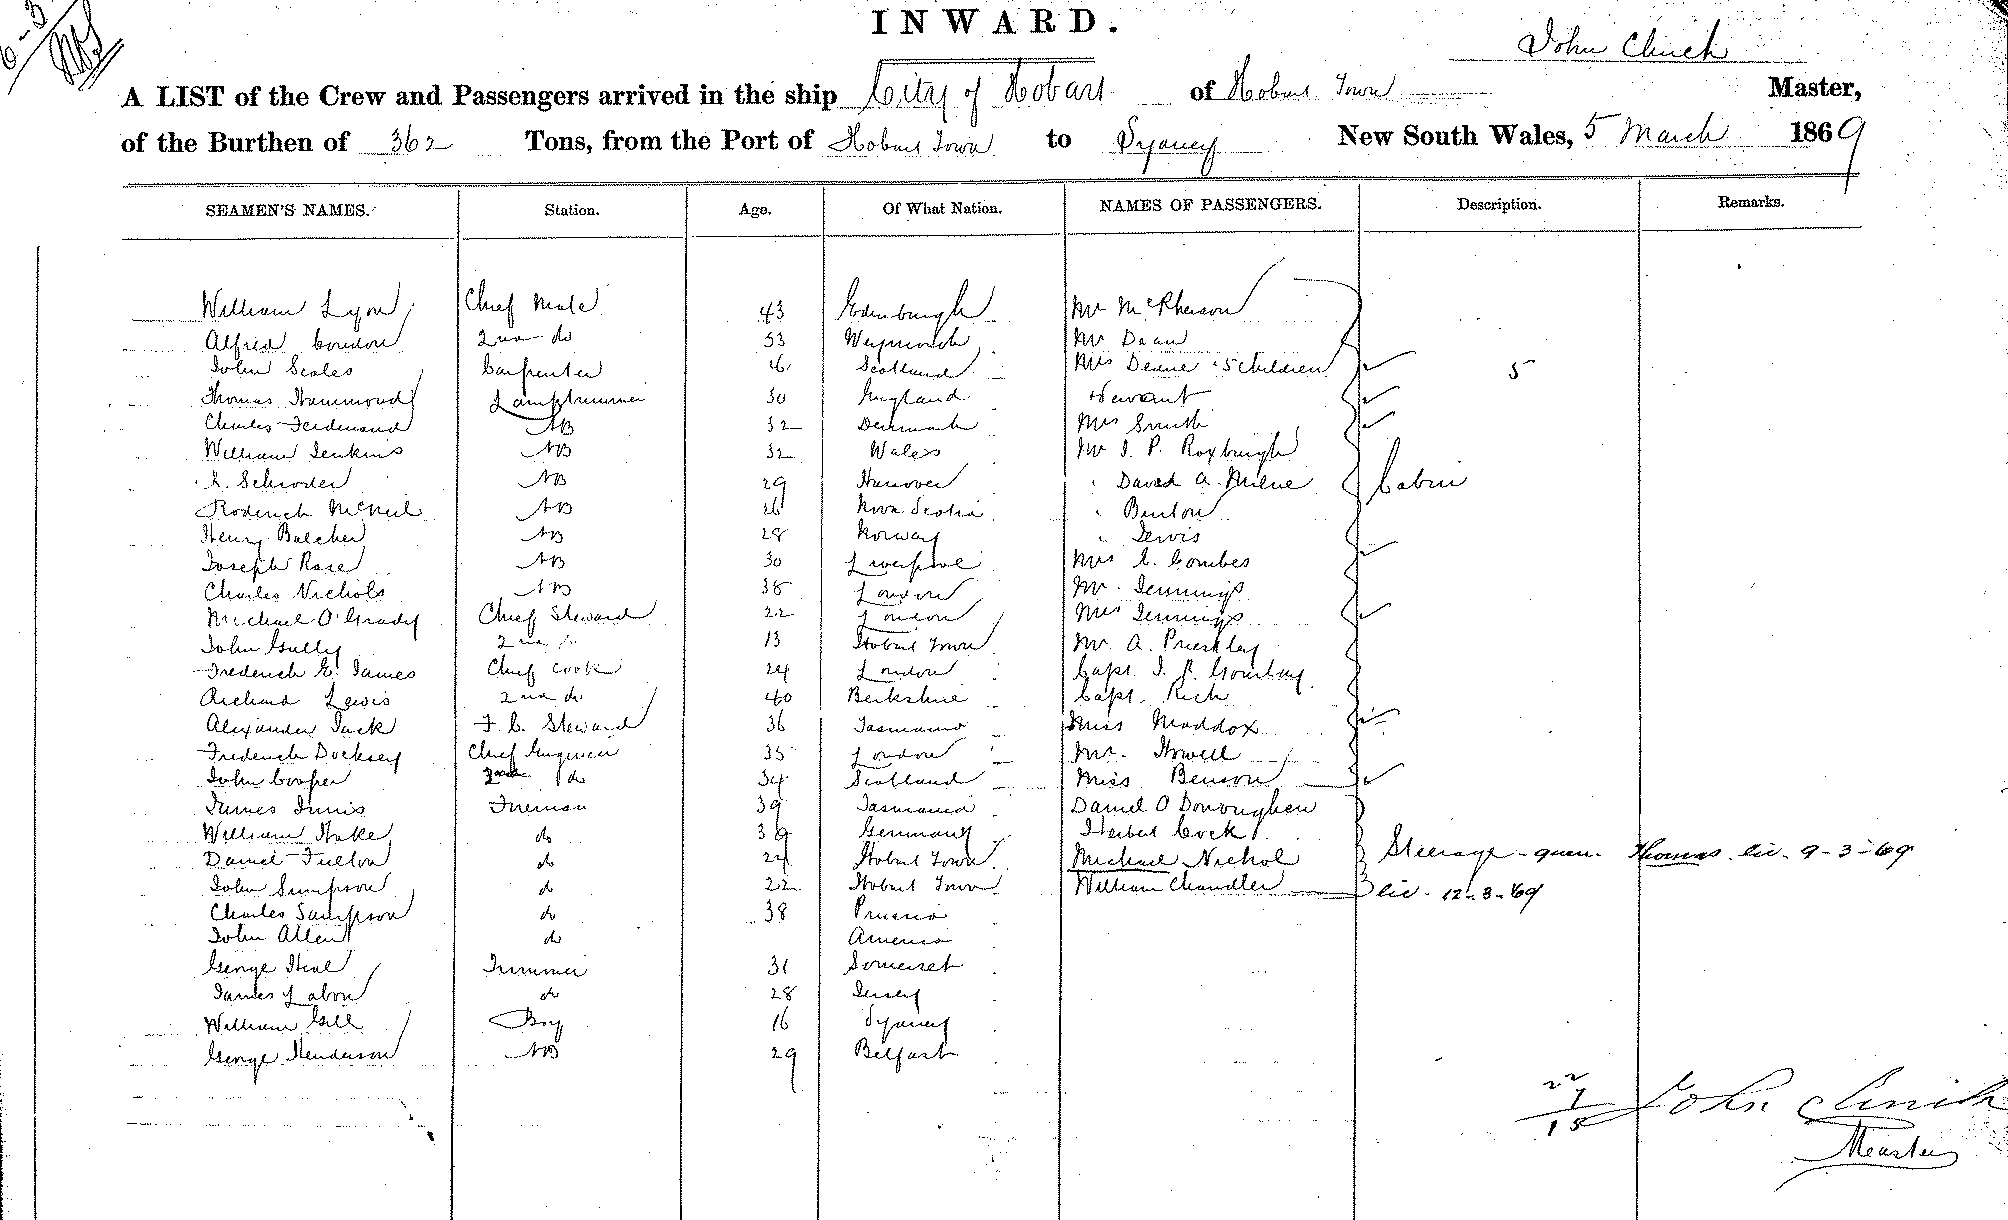 INWARD.
John Clinch
A LIST of the Crew and Passengers arrived in the ship City of Hobart of Hobart Town Master,
of the Burthen of 362 Tons, from the Port of Hobart Town to Sydney New South Wales, 5 March 1869
SEAMEN'S NAMES. Station. Age. Of What Nation. NAMES OF PASSENGERS. Description. Remarks.
William Lyon Chief Mate 43 Edinburgh Mr McPherson
Alfred Condon 2nd do 33 Weymouth Mr Dean
John Scales Carpenter Scotland Mrs Deane 5 children 5
Thomas Hammond Lamptrimmer 30 England Servant
Charles Ferdinand AB 32 Denmark Mrs Smith
William Jenkins AB 32 Wales Mr J. P. Roxburgh
Schroder AB 29 Hanover " David A. Milne Cabin
Roderick McNeil AB 26 Nova Scotia " Benton
Henry Balcher AB 28 Norway " Lewis
Joseph Rase AB 30 Liverpool Mrs C. Combes
Charles Nichols AB 38 London Mr. Jennings
Michael O'Grady Chief Steward 22 London Mrs Jennings
John Gully 2nd 13 Hobart Town Mr A. Priestley
Frederick E. James Chief Cook 24 London Capt. J. P.
Richard Lewis 2nd do 40 Berkshire Capt. Rich
Alexander Jack F. C. Steward 36 Tasmania Miss Maddox
Frederick Docksey Chief Engineer 35 London Mr. Howell
John Cooper 2nd do 34 Scotland Miss Benson
James Innis Fireman 39 Tasmania Daniel O Donoughen
William Hake do 39 Germany Herbert Cock
Daniel Fulton do 24 Hobart Town Michael Nichol Steerage - quen. Thomas lic. 9-3-69
John Simpson do 22 Hobart Town William Chandler lic. 12-3-69
Charles Sampson do 38 Prussia
John Allen do America
George Heal Trimmer 31 Somerset
James Labon do 28 Jersey
William Gill Boy 16 Sydney
George Henderson AB 29 Belfast
22
7
15
John Clinch
Master